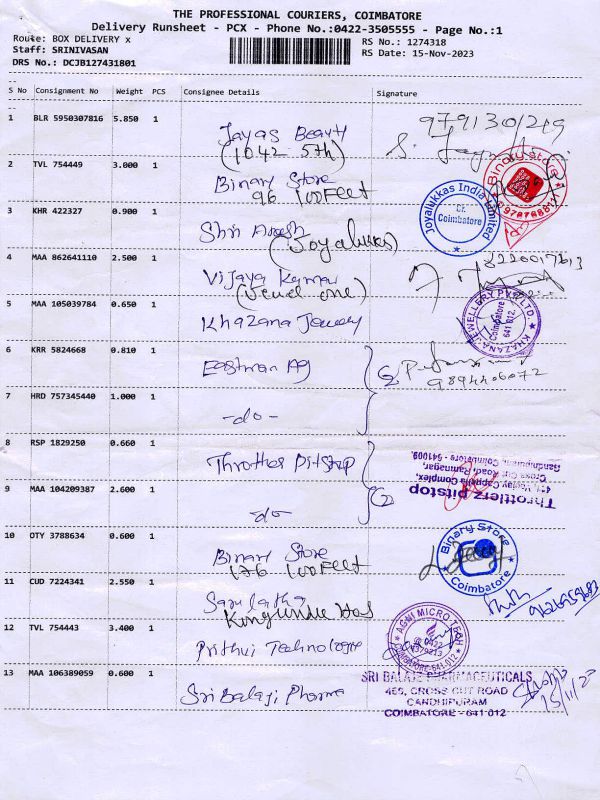 THE PROFESSIONAL COURIERS, COIMBATORE
Delivery Runsheet - PCX - Phone No.:0422-3505555 - Page No.:1
Route: BOX DELIVERY x
RS No.: 1274318
Staff: SRINIVASAN
RS Date: 15-Nov-2023
DRS No.: DCJB127431801
S No Consignment No Weight PCS Consignee Details Signature
1 BLR 5950307816 5.850 1
Jayas Beauty
(1042 5th)
2 TVL 754449 3.000 1
Binary Store
96 100 Feet
Binary Store
3 KHR 422327 0.900 1
Shri
(Joyalukkas)
Joyalukkas India Limited
Coimbatore
4 MAA 862641110 2.500 1
Vijaya Kumar
(Jewel one)
5 MAA 105039784 0.650 1
Khazana Jewey
KHAZANA JEWELLERY PVT LTD
Coimbatore
641 012.
6 KRR 5824668 0.810 1
Eastman Ag
9894406072
7 HRD 757345440 1.000 1
-do-
8 RSP 1829250 0.660 1
Throttles Pitstop
Throttlerz pitstop
Cross Cut Road, Ramnagar,
Gandhipuram, Coimbatore - 641009.
9 MAA 104209387 2.600 1
do
10 OTY 3788634 0.600 1
Binary Store
176 100 Feet
Binary Store
Coimbatore
11 CUD 7224341 2.550 1
12 TVL 754443 3.400 1
Prithvi Technologie
AGNI MICRO TECH
13 MAA 106389059 0.600 1
Sri Balaji Pharma
SRI BALAJI PHARMACEUTICALS
469, CROSS CUT ROAD
GANDHIPURAM
COIMBATORE - 641 012
15/11/23